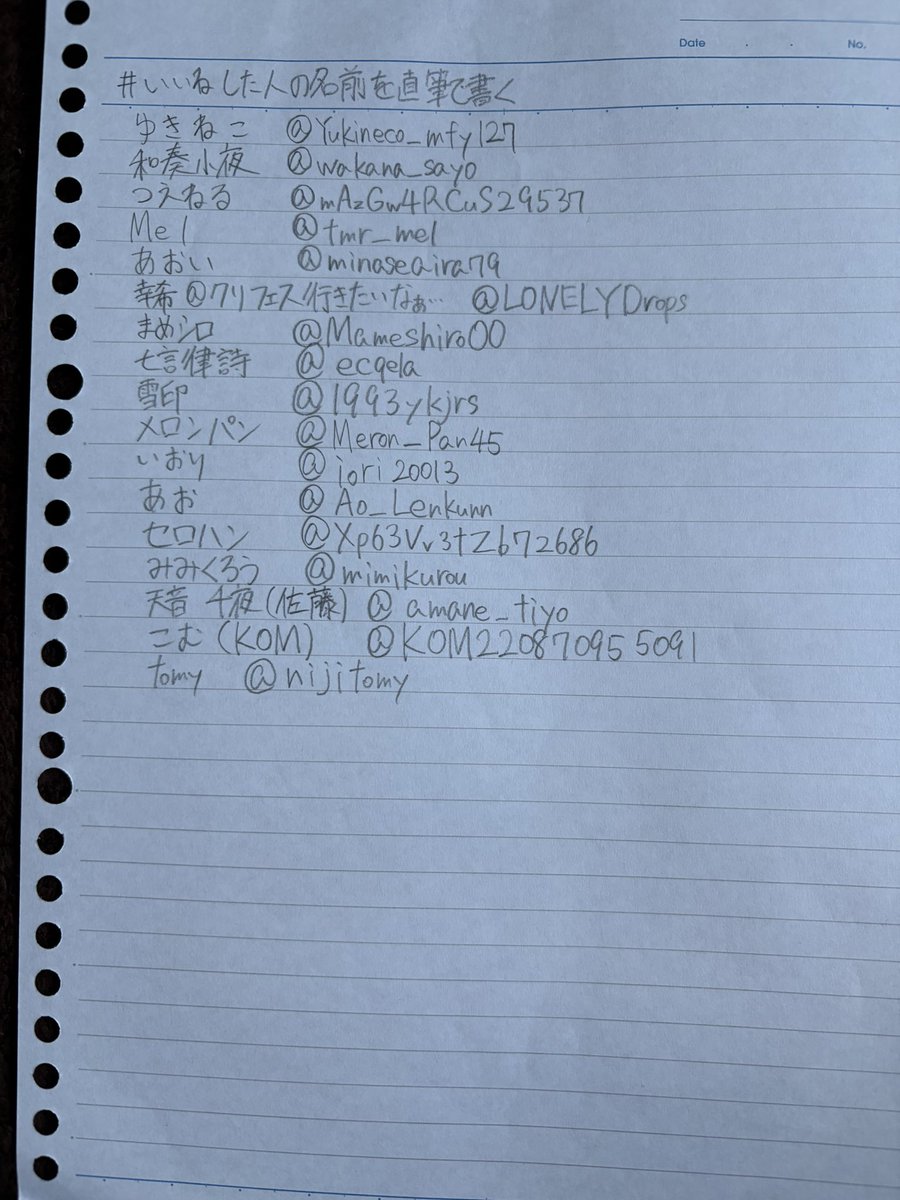 Date . . No.
#いいねした人の名前を直筆で書く
ゆきねこ @Yukineco_mfy127
和奏小夜 @wakana_sayo
つえねる @mAzGw4RCuS29537
Mel @tmr_mel
あおい @minaseaira79
幸希@クリフェス行きたいなぁ… @LONELYDrops
まめシロ @Mameshiro00
七言律詩 @ecqela
雪印 @1993ykjrs
メロンパン @Meron_Pan45
いおり @iori20013
あお @Ao_Lenkunn
セロハン @Xp63Vv3tZb72686
みみくろう @mimikurou
天音 千夜(佐藤) @amane_tiyo
こむ(KOM) @KOM220870955091
tomy @nijitomy